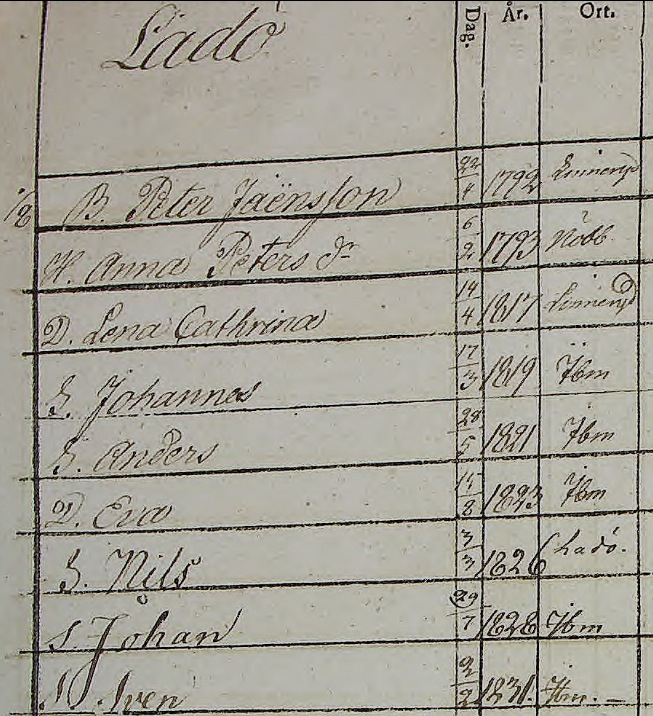 Ladö Dag. År. Ort.
1/8 B. Peter Jaënsson 22/4 1792 Linneryd
H. Anna Peters dr 6/2 1793 Nöbb.
D. Lena Cathrina 14/4 1817 Linneryd
S. Johannes 17/3 1819 Ibm
S. Anders 28/5 1821 Ibm
D. Eva 8 1823 Ibm
S. Nils 3/3 1826 Ladö.
S. Johan 29/7 1828 Ibm
S. Sven 2/2 1831. Ibm. —